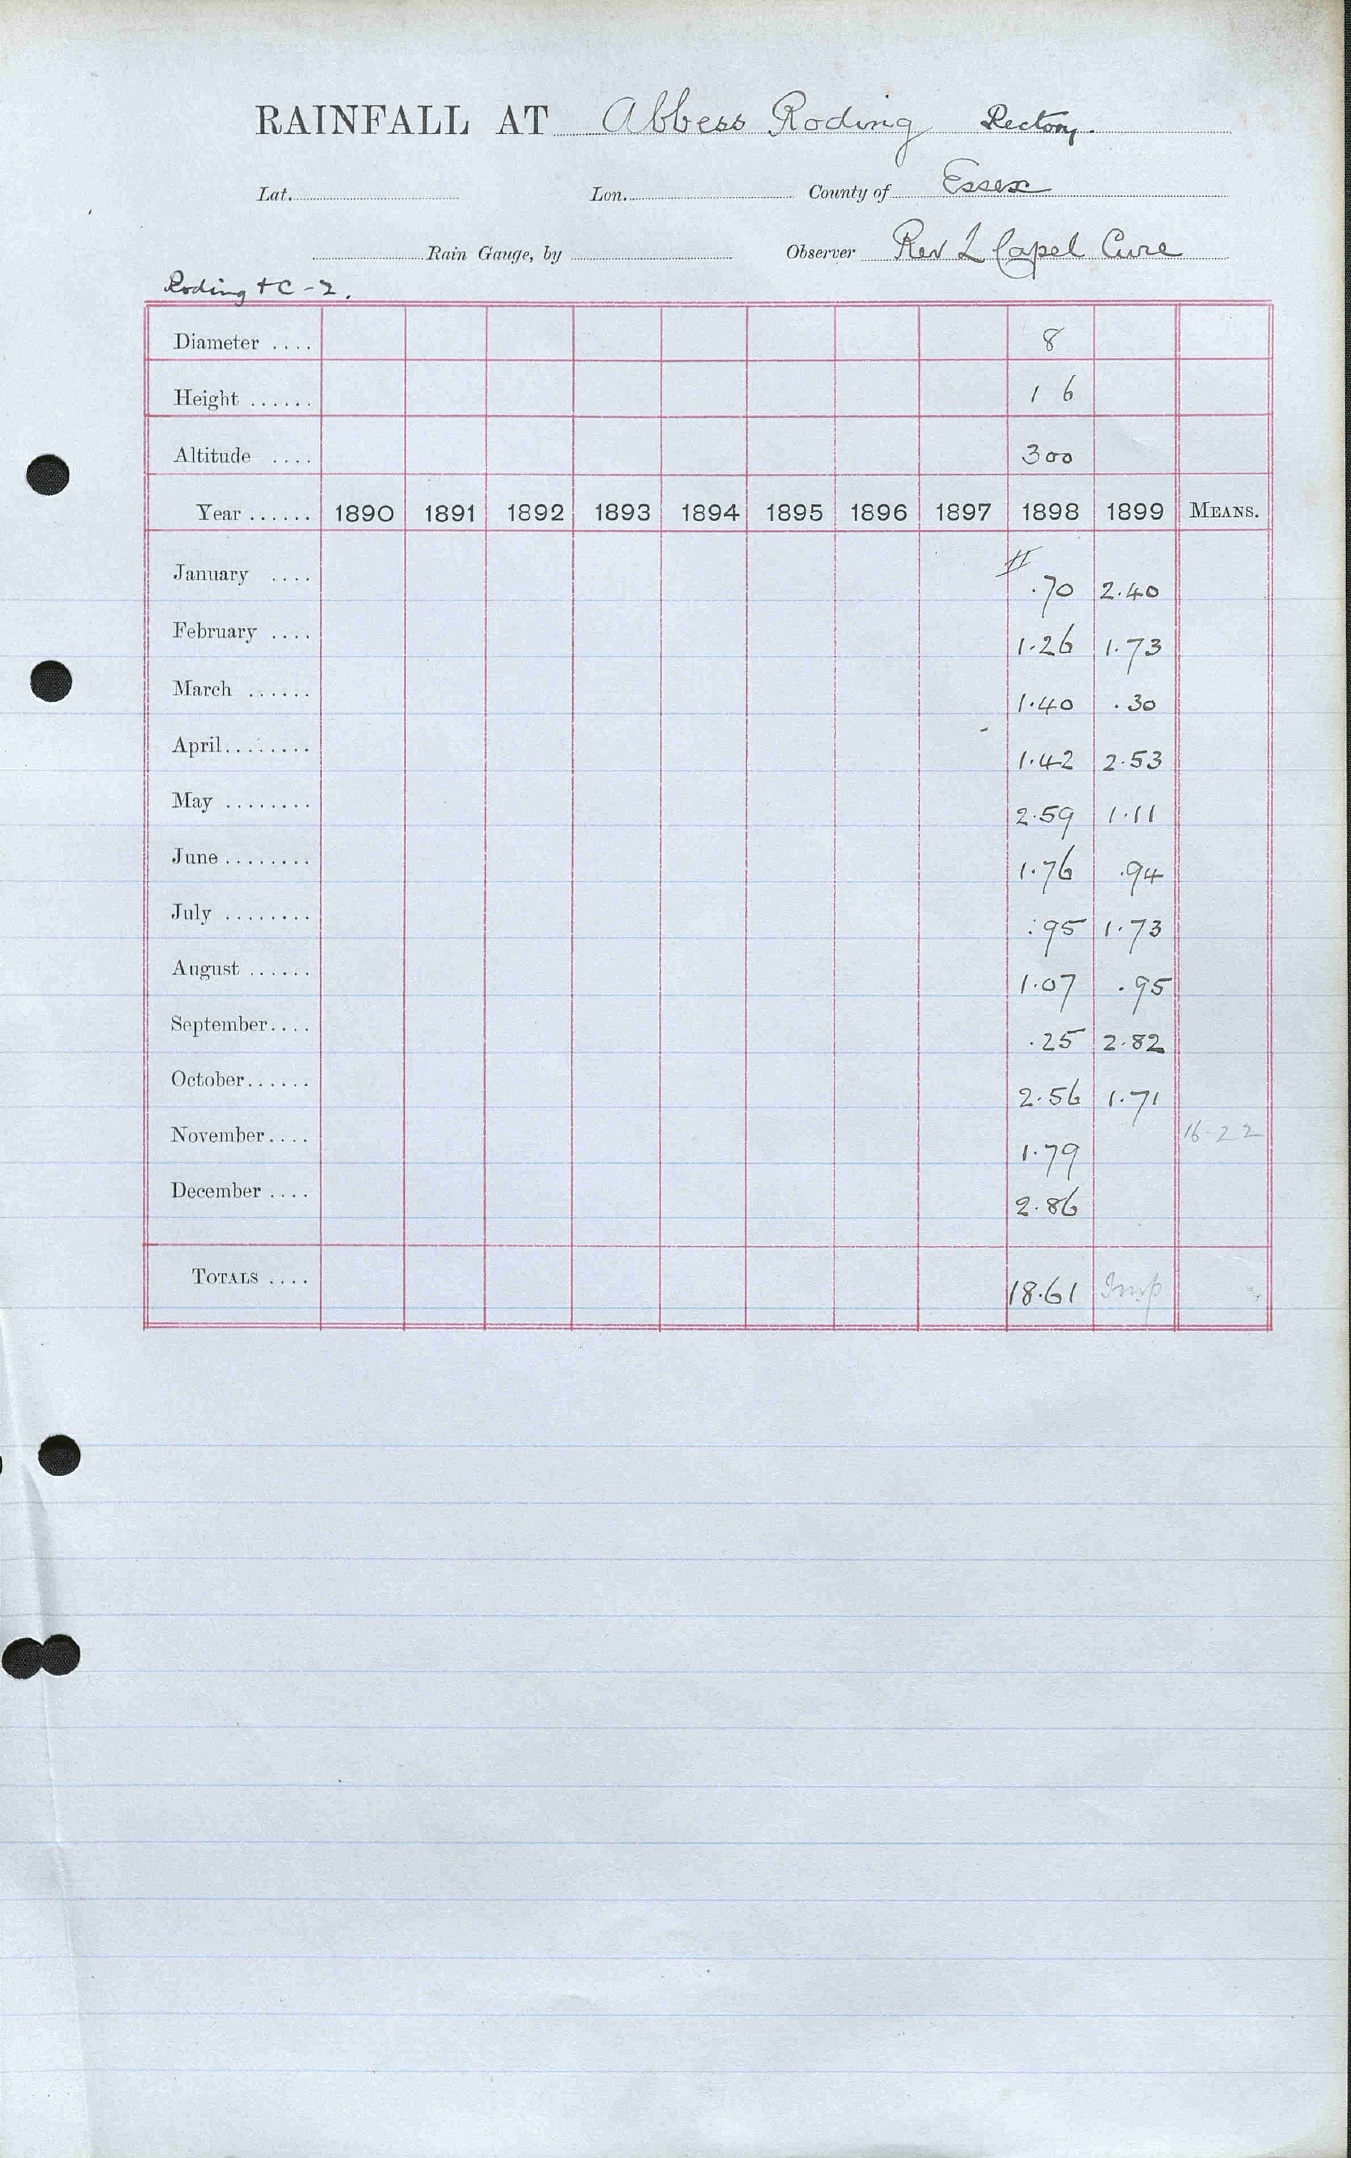 RAINFALL AT Abbess Roding Rectory.
Lat. Lon. County of Essex
Rain Gauge, by Observer Rev L Capel Cure
Roding + C - 2.
Diameter .... 8
Height ...... 1 6
Altitude .... 300
Year ...... 1890 1891 1892 1893 1894 1895 1896 1897 1898 1899 MEANS.
January .... .70 2.40
February .... 1.26 1.73
March ...... 1.40 .30
April........ 1.42 2.53
May ........ 2.59 1.11
June ........ 1.76 .94
July ........ .95 1.73
August ...... 1.07 .95
September.... .25 2.82
October...... 2.56 1.71
November.... 1.79 16.22
December .... 2.86
TOTALS .... 18.61 Imp